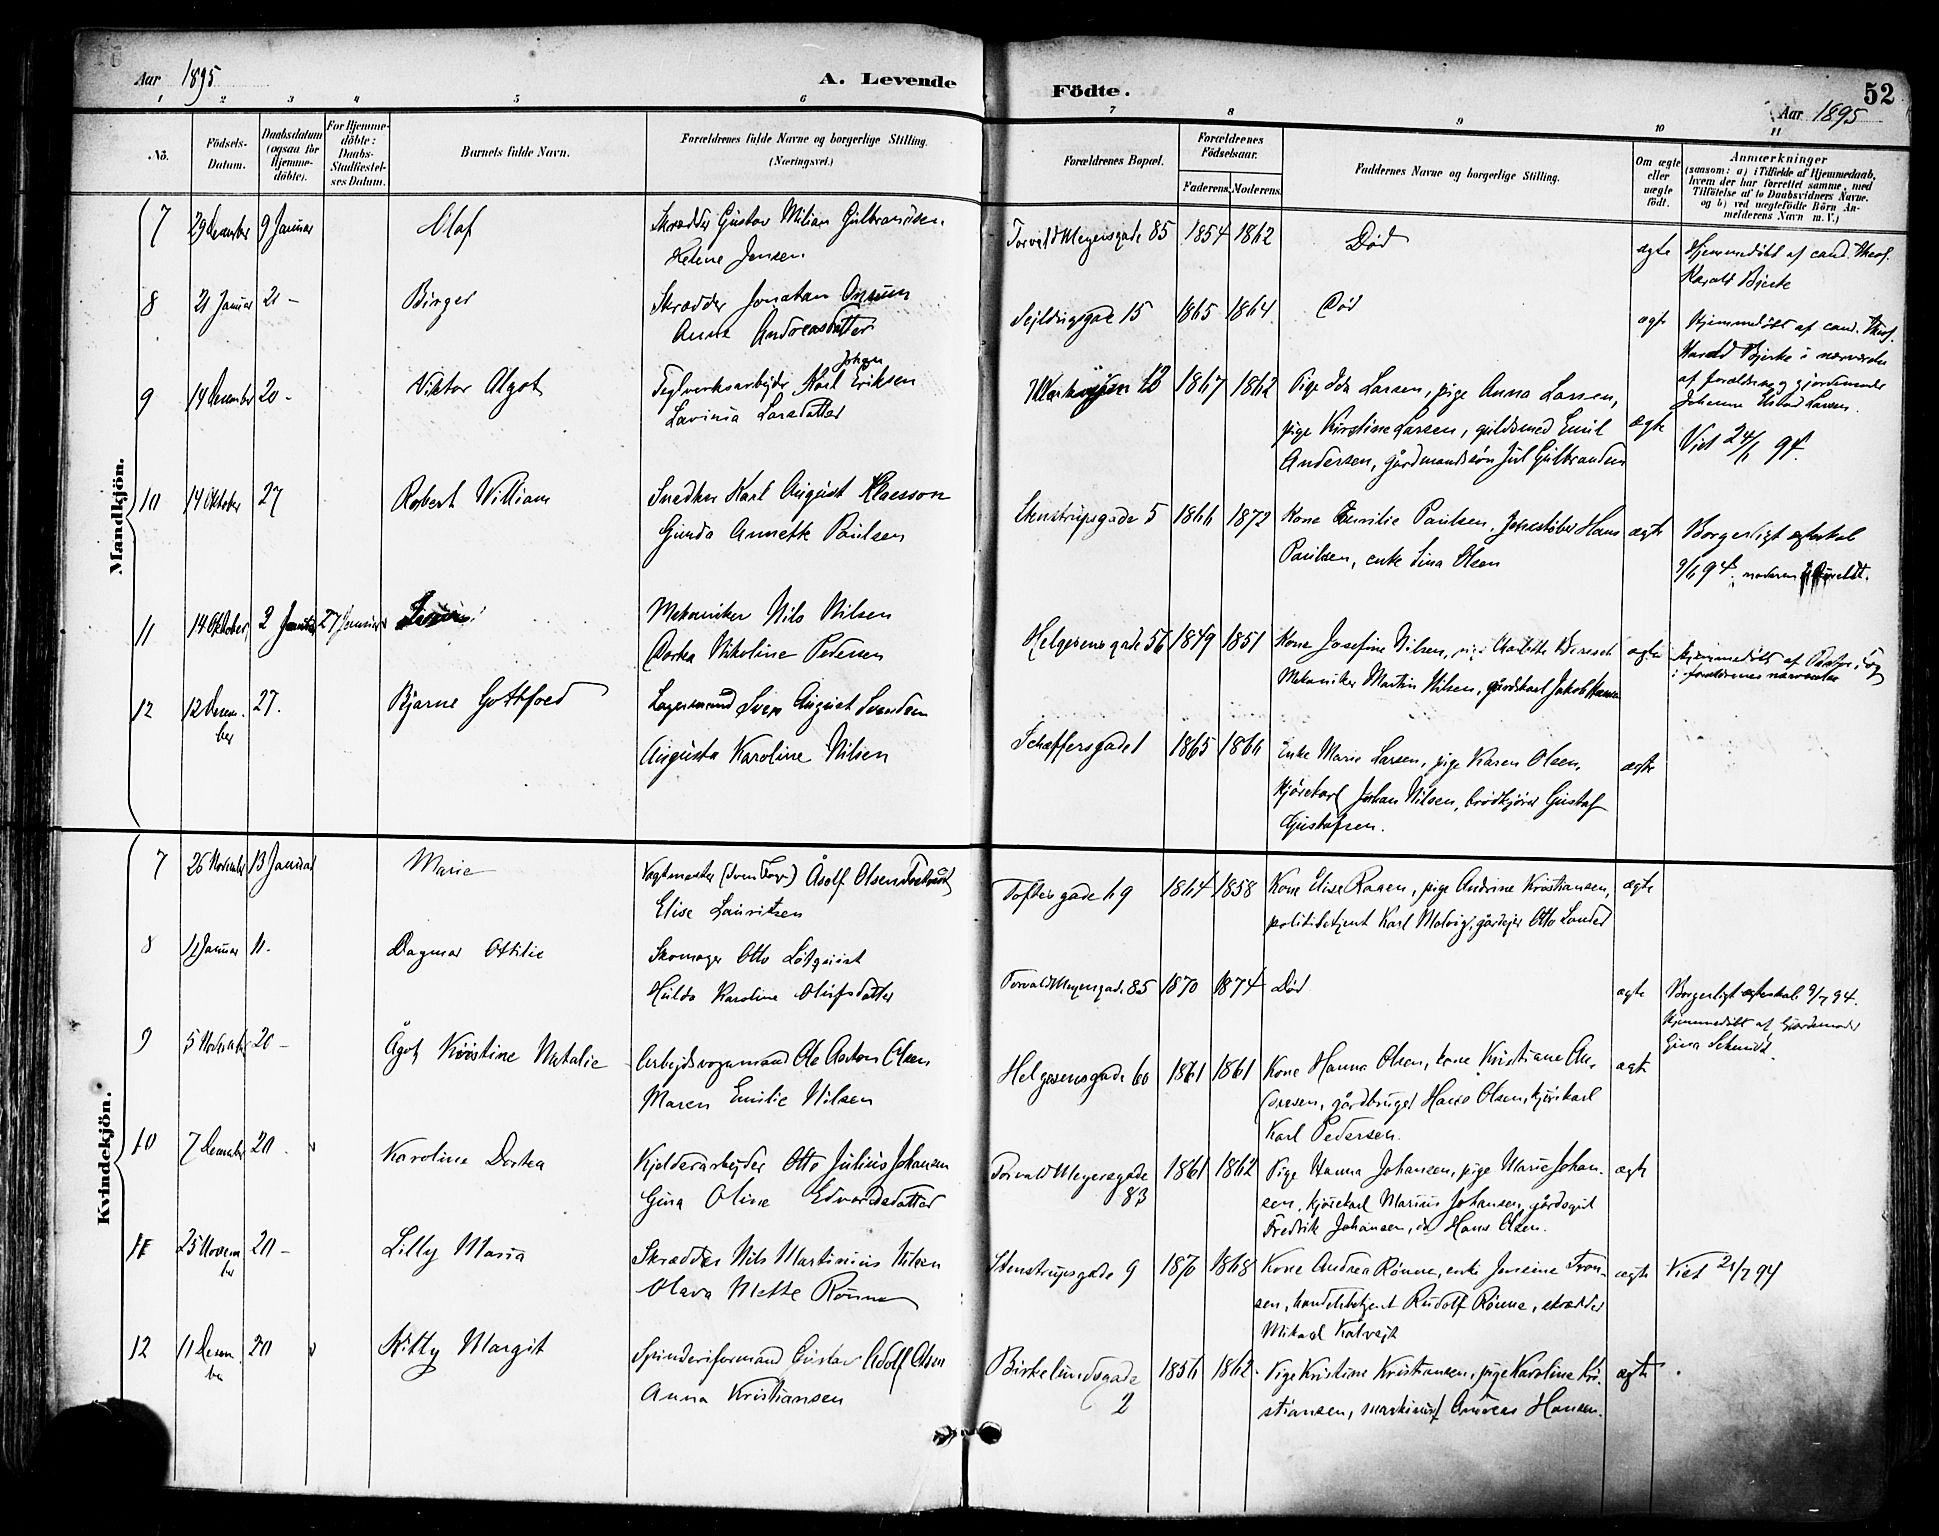 Aar 1895
A. Levende
Födte.
52
Aar 1895
1 2 3 4 5 6 7 8 9 10 11
No.
Födsels-
Datum.
Daabsdatum
(ogsaa for
Hjemme-
döbte).
For Hjemme-
döbte:
Daabs-
Stadfæstel-
ses Datum.
Barnets fulde Navn.
Forældrenes fulde Navne og borgerlige Stilling.
(Næringsvei.)
Forældrenes Bopæl.
Forældrenes
Födselsaar.
Faderens. Moderens.
Faddernes Navne og borgerlige Stilling.
Om ægte
eller
uægte
födt.
Anmærkninger
(saasom: a) i Tilfælde af Hjemmedaab,
hvem der har forrettet samme, med
Tilföielse af to Daabsvidners Navne.
og b) ved uægtefödte Börn An-
melderens Navn m. V.)
Mandkjön.
7 29 December 9 Januar Olaf
Skrædder Gustav Milian Gulbrandsen
Helene Jensen
Torvald Meyersgade 85 1854 1862 Död ægte
Hjemmedöbt af cand. theol.
Harald Bjerke
8 21 Januar 21 - Birger
Skrædder Jonatan
Anna Andreasdatter
Sejldugsgade 15 1865 1864 Död ægte
Hjemmedöbt af cand. theol.
Harald Bjerke i nærværelse
af forældre og gjordemoder
Johanne Larsen.
9 14 December 20 - Viktor Algot
Teglverksarbejder Karl Johan Eriksen
Lavinia Larsdatter
1867 1862 Pige Ida Larsen, pige Anna Larsen,
pige Kirstine Larsen, guldsmed Emil
Andersen, gårdmandssön Jul Gulbrandsen
ægte
Viet 24/1 94.
10 14 Oktober 27 Robert William
Snedker Karl August Klaesson
Gunda Annette Paulsen
Stenstrupsgade 5 1866 1872 Kone Emilie Paulsen, Jernstöber Hans
Paulsen, enke Lina Olsen
ægte
Borgerligt ægteskab
9/6 94, moderen
11 14 Oktober 2 Januar 27 Januar
Mekaniker Nils Nilsen
Dortea Nikoline Pedersen
Helgesensgade 56 1849 1851 Kone Josefine Nilsen, pige Charlotte
Mekaniker Martin Nilsen, gårdskarl Jakob Hansen
ægte
Hjemmedöbt af
i forældrenes nærværelse
12 12 Decem-
ber 27. Bjarne Gottfred
Lagermand Sven August Svendsen
Augusta Karoline Nilsen
Schæffersgade 1 1865 1866 Enke Marie Larsen, pige Karen Olsen,
kjörekarl Johan Nilsen, brödkjörer Gustaf
Gustafsen.
ægte
Kvindekjön.
7 26 November 13 Januar Marie
Vagtmester Adolf Olsen
Elise Lauritzen
Toftesgade 69 1864 1858 Kone Elise Roaen, pige Andrine Kristiansen,
politibetjent Karl Malvig, gårdejer Otto
ægte
8 11 Januar 11. Dagmar Ottilie
Skomager Otto Löfqvist
Hulda Karoline Olufsdatter
Torvald Meyersgade 85 1870 1874 Död ægte
Borgerligt ægteskab 9/7 94.
Hjemmedöbt af Gjordemoder
Gina Schmidt.
9 5 November 20 - Ågot Kristine Natalie
Arbejdsvognmand Ole Anton Olsen
Maren Emilie Nilsen
Helgesensgade 60 1861 1861 Kone Hanna Olsen, kone Kristiane An-
dresen, gårdbruger Hans Olsen, kjörekarl
Karl Pedersen.
ægte
10 7 December 20. Karoline Dortea
Kjelderarbejder Otto Julius Johansen
Gina Oline Edvardsdatter
Torvald Meyersgade
83
1861 1862 Pige Hanna Johansen, pige Marie Johan-
sen, kjörekarl Marius Johansen, gårdsgut
Fredrik Johansen, do Hans Olsen.
ægte
11 25 Novem-
ber 20 - Lilly Maria
Skrædder Nils Martinius Nilsen
Olava Mette Rönne
Stenstrupsgade 9 1870 1868 Kone Andrea Rönne, enke Jensine Tron-
sen, handelsbetjent Rudolf Rönne, skrædder
Mikael Kalvejt
ægte Viet 21/7 94
12 11 Decem-
ber 20 Kitty Margit
Spinderiformand Gustav Adolf Olsen
Anna Kristiansen
Birkelundsgade
2
1856 1862. Pige Kristine Kristiansen, pige Karoline Kri-
stiansen, maskinist Andreas Hansen.
ægte